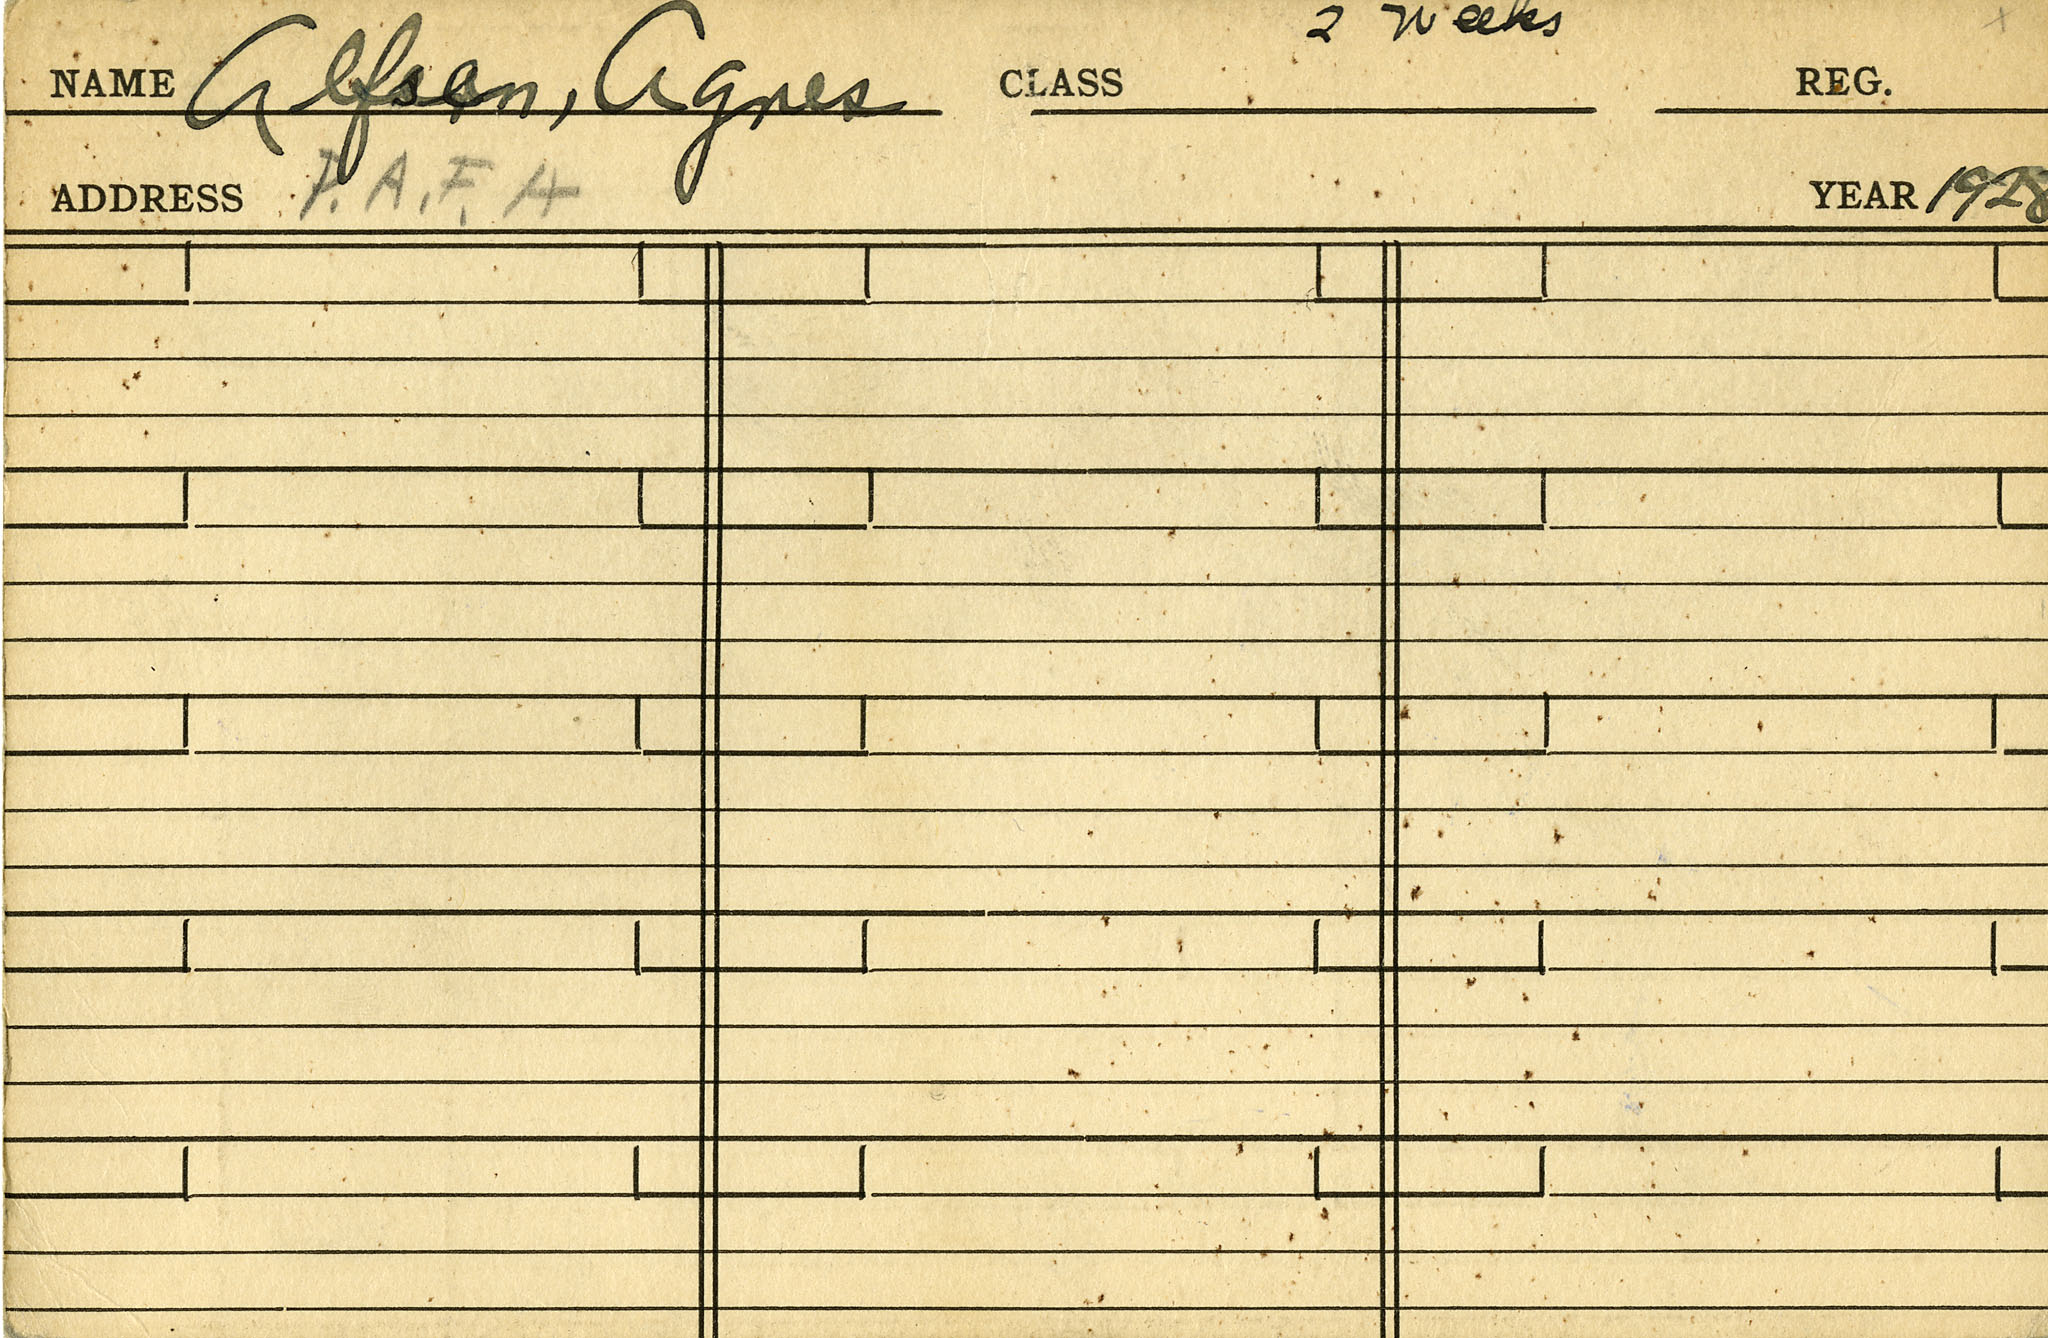 2 Weeks
NAME Alfsen, Agnes CLASS REG.
ADDRESS P. A. F. A YEAR 1928